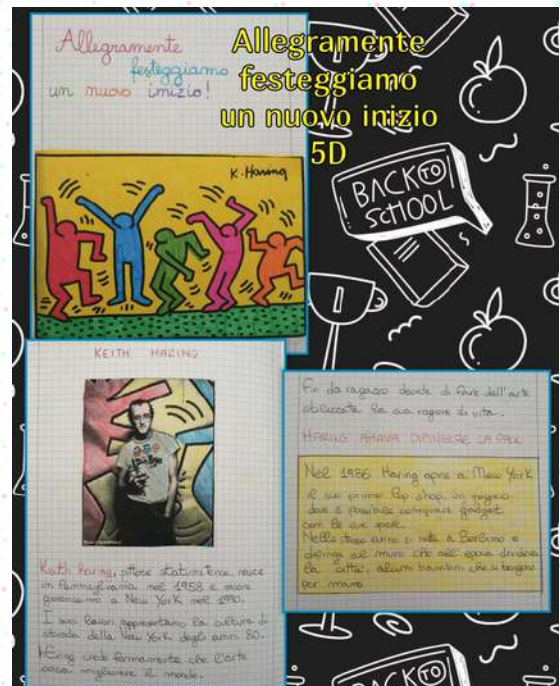 Allegramente
festeggiamo
un nuovo inizio!
Allegramente
festeggiamo
un nuovo inizio
5D
K. Haring
BACK TO
SCHOOL
KEITH HARING
Keith Haring, pittore statunitense, nasce
in Pennsylvania nel 1958 e muore
giovanissimo a New York nel 1990.
I suoi lavori rappresentano la cultura di
strada della New York degli anni 80.
Haring crede fermamente che l'arte
possa migliorare il mondo.
Fin da ragazzo decide di fare dell'arte
la sua ragione di vita.
HARING AMAVA DIPINGERE LA PACE
Nel 1986 Haring apre a New York
il suo primo Pop shop, un negozio
dove è possibile comprare gadget
con le sue opere.
Nello stesso anno si reca a Berlino e
dipinge sul muro che all'epoca divideva
la città, alcuni bambini che si tengono
per mano.
BACK TO